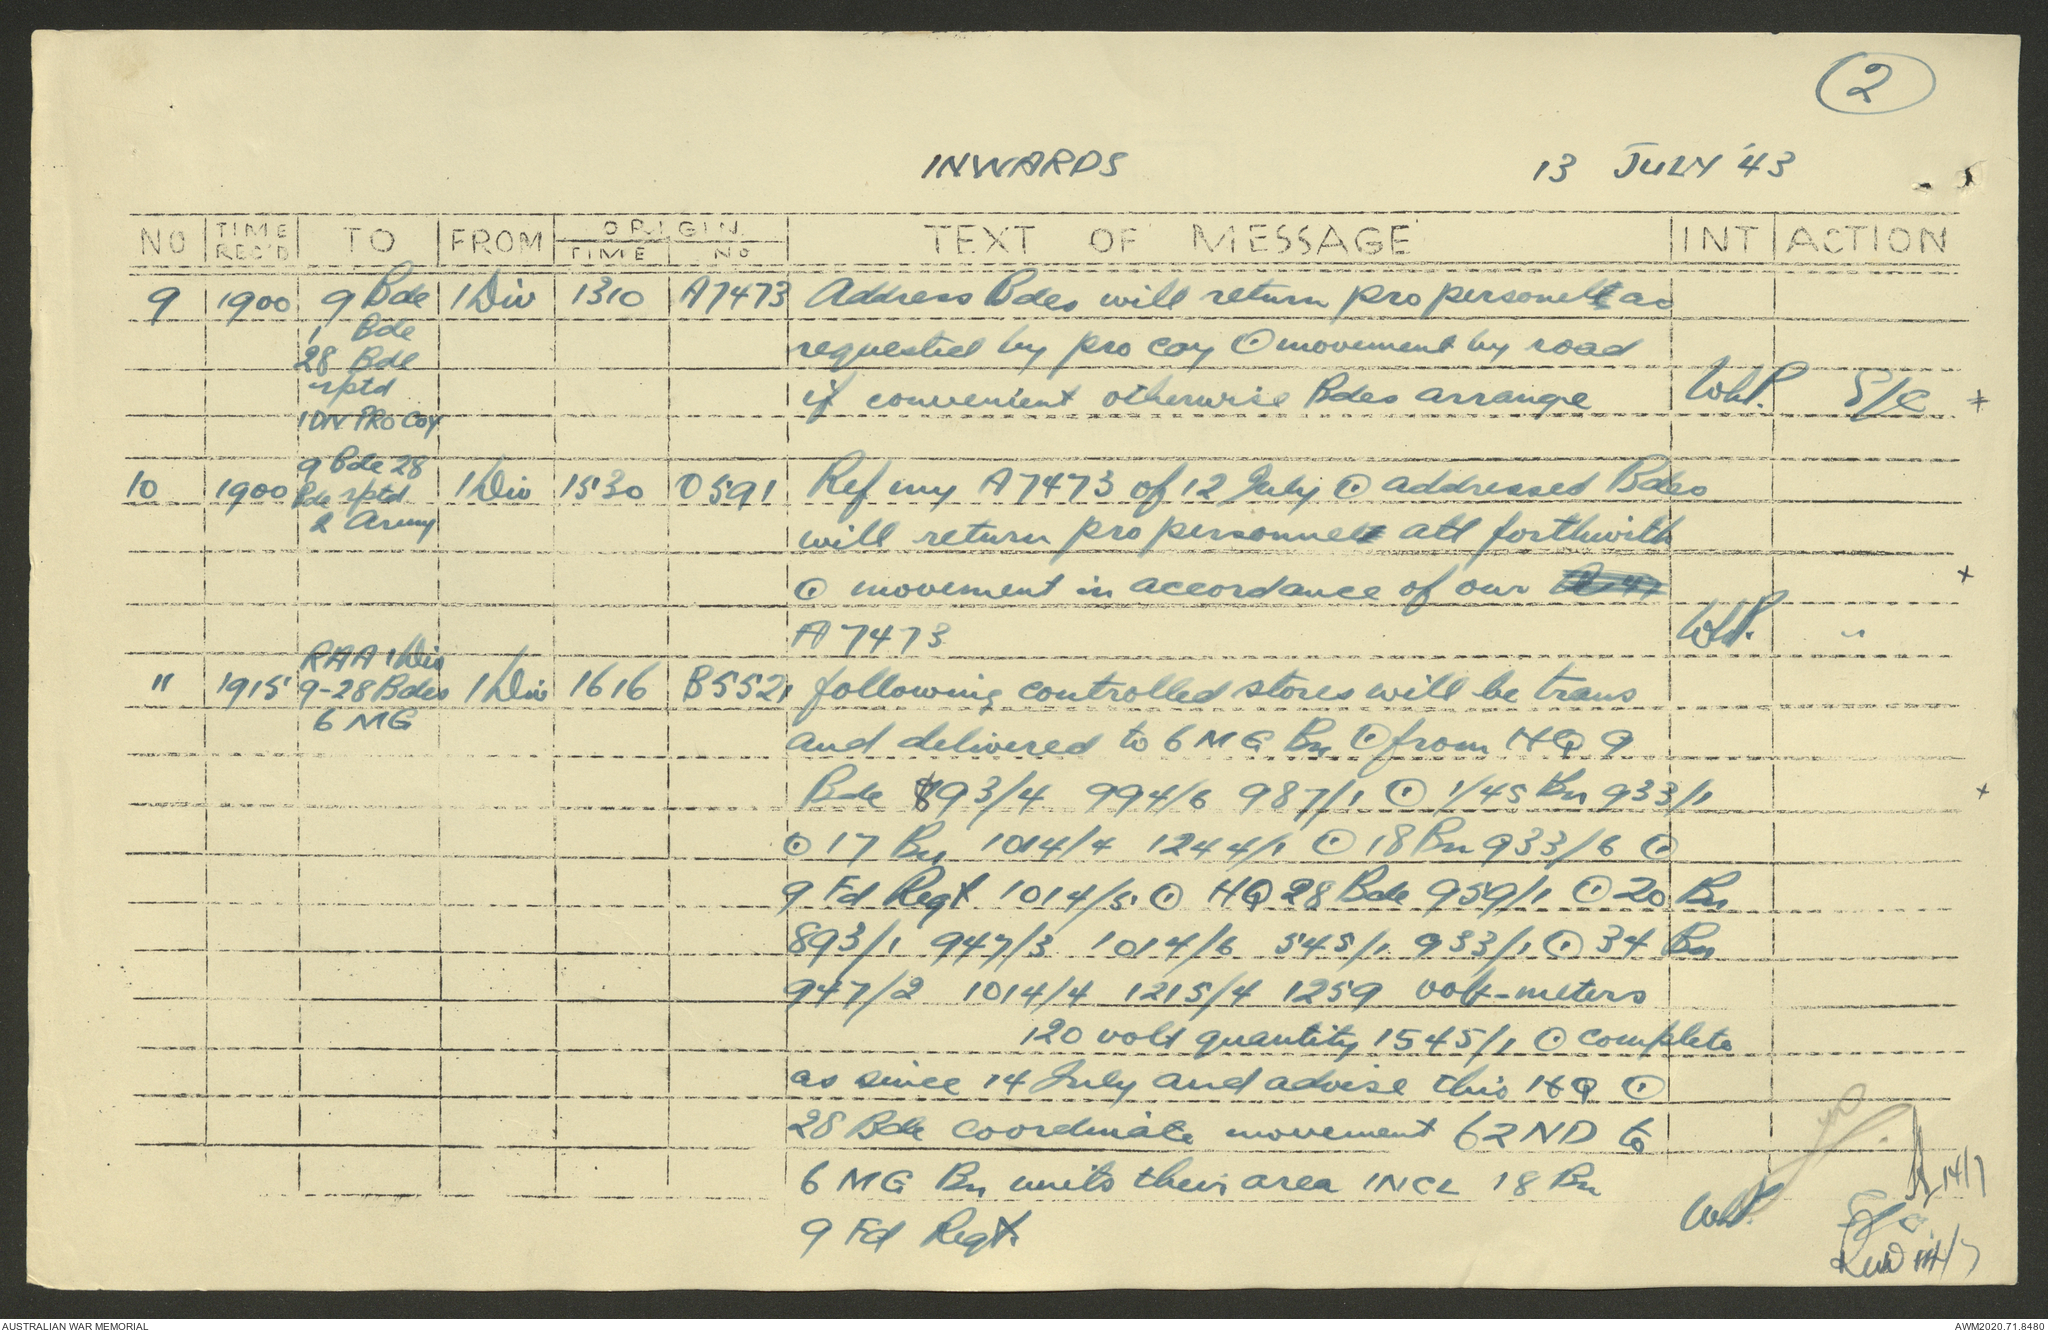 2
INWARDS 13 JULY '43
NO TIME REC'D TO FROM ORIGIN TIME NO TEXT OF MESSAGE INT ACTION
9 1900 9 Bde 1 Div 1310 A7473 Address Bdes will return pro personell as
1 Bde
28 Bde requested by pro coy ⊙ movement by road
rptd if convenient otherwise Bdes arrange WHP. S/C
1 DIV PRO COY
9 Bde 28
10 1900 Bde rptd 1 Div 1530 O591 Ref my A7473 of 12 July ⊙ addressed Bdes
2 Army will return pro personnel att forthwith
⊙ movement in accordance of our
A7473 WHP. "
RAA 1 Div
11 1915 9-28 Bdes 1 Div 1616 B5521 following controlled stores will be trans
6 MG
and delivered to 6 MG Bn ⊙ from HQ 9
Bde 893/4 994/6 987/1 ⊙ 1/45 Bn 933/1
⊙ 17 Bn 1014/4 1244/1 ⊙ 18 Bn 933/6 ⊙
9 Fd Regt 1014/5 ⊙ HQ 28 Bde 959/1 ⊙ 20 Bn
893/1 947/3 1014/6 545/1 933/1 ⊙ 34 Bn
947/2 1014/4 1215/4 1259 volt-meters
120 volt quantity 1545/1 ⊙ complete
as since 14 July and advise this HQ ⊙
28 Bde coordinate movement 62ND to
6 MG Bn units their area INCL 18 Bn
9 Fd Regt. WHP.
14/7
14/7
AUSTRALIAN WAR MEMORIAL AWM2020.71.8480